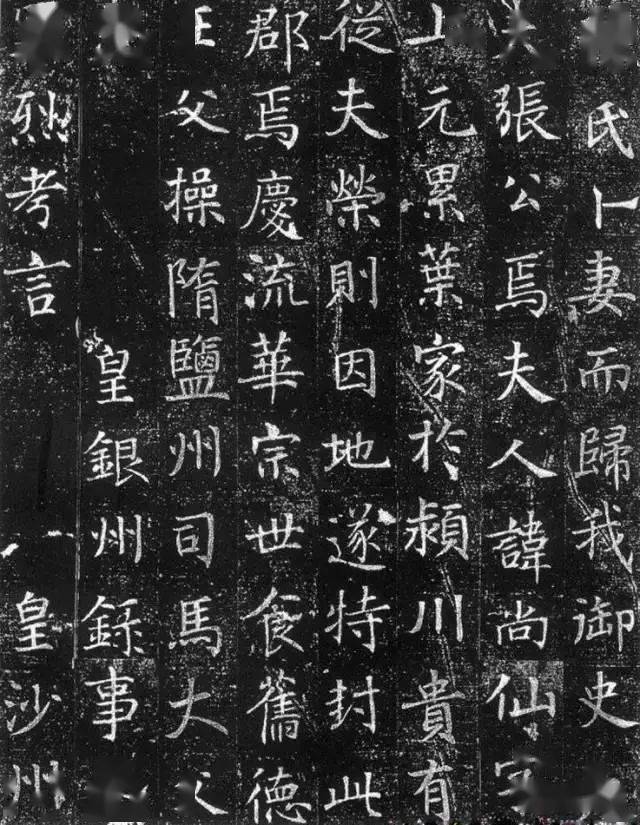 氏卜妻而歸我御史
夫張公焉夫人諱尚仙字
上元累葉家於潁川貴有
從夫榮則因地遂特封此
郡焉慶流華宗世食舊德
王父操隋鹽州司馬大父
皇銀州錄事
烈考言 皇沙州